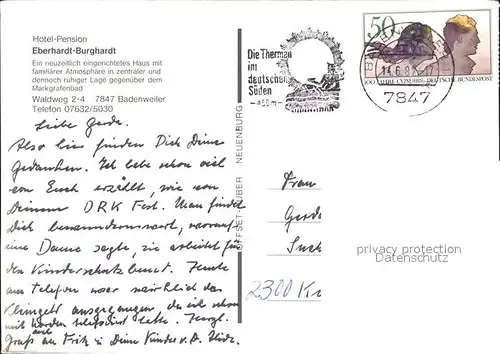 Hotel-Pension
Eberhardt-Burghardt
Ein neuzeitlich eingerichtetes Haus mit
familiärer Atmosphäre in zentraler und
dennoch ruhiger Lage gegenüber dem
Markgrafenbad
Waldweg 2-4 7847 Badenweiler
Telefon 07632/5030
Liebe Gerda.
Also hier finden Dich Deine
Gedanken. Ich habe schon viel
von Euch erzählt, wie von
Deinem DRK Fest. Man findet
Dich bewundernswert, worauf
eine Dame sagte, sie arbeitet für
den Kinderschutzbund. Heute
am Telefon war nämlich das
Kleingeld ausgegangen da ich schon
mit telefoniert hatte. Herzl.
Gruß an Fritz u. Deine Kinder v. D.
OFFSET-HUBER NEUENBURG
Die Thermen
im
deutschen
Süden
- 450 m -
50
100 JAHRE CVJM
DEUTSCHE BUNDESPOST
7847
Frau
Gerda
2300 Ki
privacy protection
Datenschutz